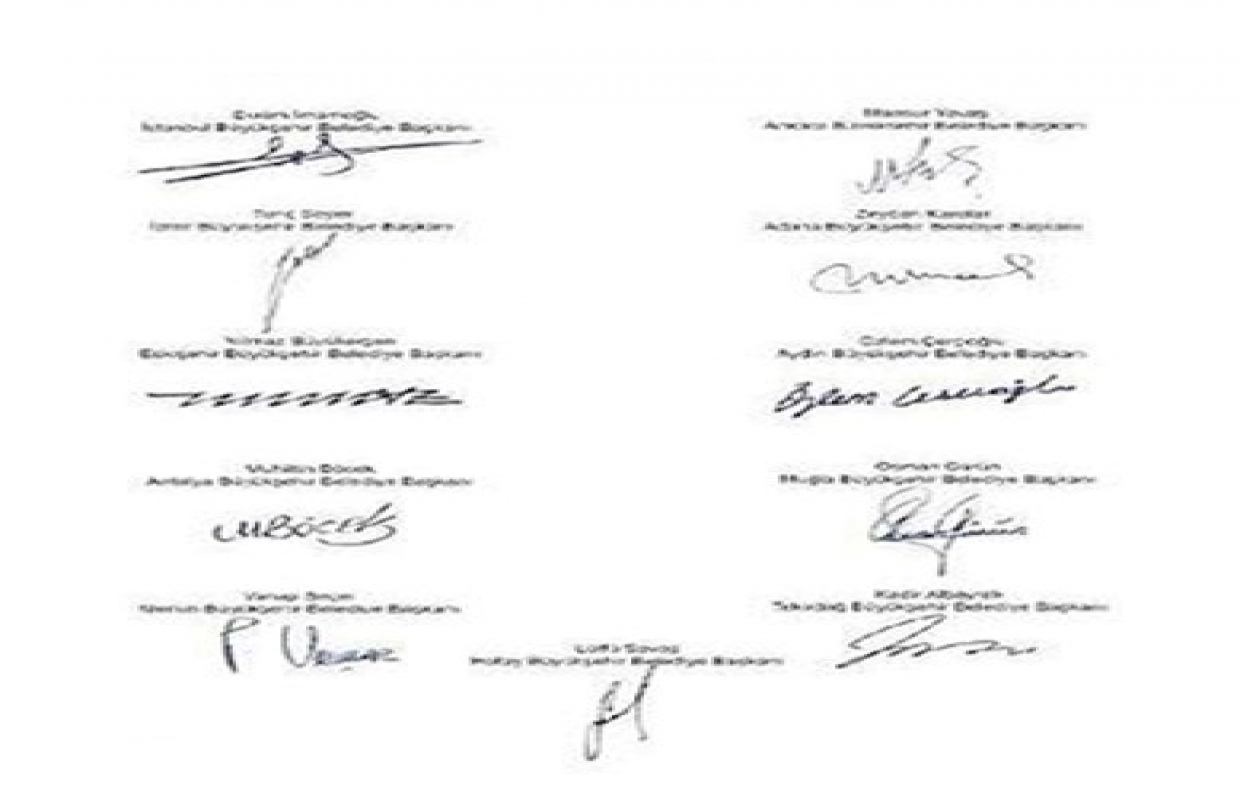 Ekrem İmamoğlu
İstanbul Büyükşehir Belediye Başkanı
Mansur Yavaş
Ankara Büyükşehir Belediye Başkanı
Tunç Soyer
İzmir Büyükşehir Belediye Başkanı
Zeydan Karalar
Adana Büyükşehir Belediye Başkanı
Yılmaz Büyükerşen
Eskişehir Büyükşehir Belediye Başkanı
Özlem Çerçioğlu
Aydın Büyükşehir Belediye Başkanı
Özlem Çerçioğlu
Muhittin Böcek
Antalya Büyükşehir Belediye Başkanı
MBÖCEK
Osman Gürün
Muğla Büyükşehir Belediye Başkanı
Vahap Seçer
Mersin Büyükşehir Belediye Başkanı
Kadir Albayrak
Tekirdağ Büyükşehir Belediye Başkanı
Lütfü Savaş
Hatay Büyükşehir Belediye Başkanı